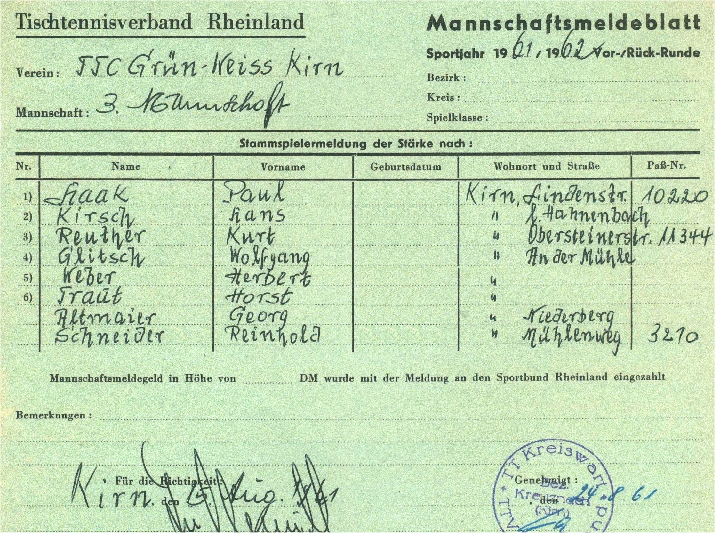 Tischtennisverband Rheinland
Mannschaftsmeldeblatt
Sportjahr 1961, 1962 Vor-/Rück-Runde
Verein: TTC Grün-Weiss Kirn
Bezirk:
Kreis:
Mannschaft: 3. Mannschaft
Spielklasse:
Stammspielermeldung der Stärke nach:
Nr. Name Vorname Geburtsdatum Wohnort und Straße Paß-Nr.
1) Haak Paul Kirn, Lindenstr. 10220
2) Kirsch Hans " Hahnenbach
3) Reuther Kurt " Obersteinerstr. 11344
4) Glitsch Wolfgang " An der Mühle
5) Weber Herbert "
6) Traut Horst "
Altmaier Georg " Niederberg
Schneider Reinhold " Mühlenweg 3210
Mannschaftsmeldegeld in Höhe von DM wurde mit der Meldung an den Sportbund Rheinland eingezahlt
Bemerkungen:
Für die Richtigkeit: Genehmigt:
Kirn. den Aug. 1961 den 24.8.61
TT Kreiswart
Bez.